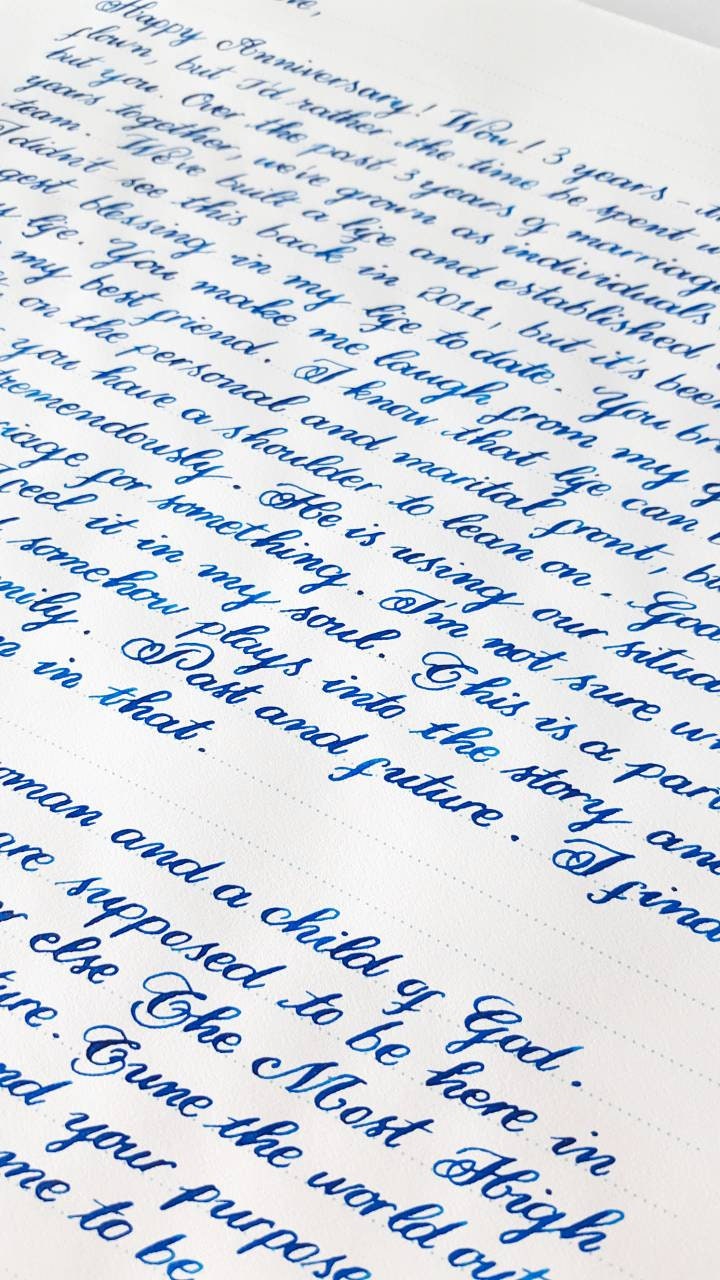 Happy Anniversary! Wow! 3 years -
flown, but I'd rather the time be spent
but you. Over the past 3 years of marriage
years together, we've grown as individuals
team. We've built a life and established
I didn't see this back in 2011, but it's been
gest blessing in my life to date. You br
life. You make me laugh from my g
my best friend. I know that life can
on the personal and marital front, bu
you have a shoulder to lean on. God
tremendously. He is using our situa
riage for something. I'm not sure w
feel it in my soul. This is a part
somehow plays into the story and
mily. Past and future. I find
in that.
oman and a child of God.
are supposed to be here in
else The Most High
ture. Tune the world out
nd your purpose
me to be